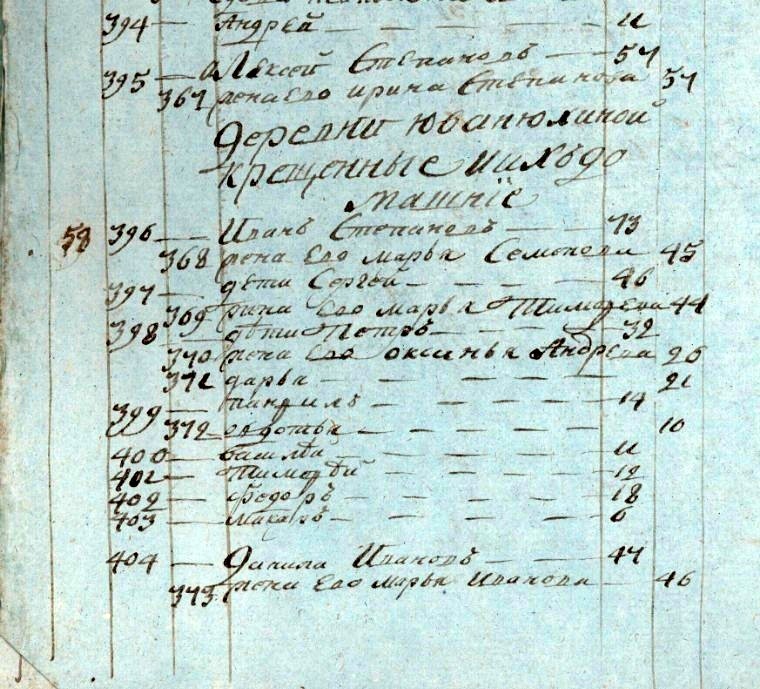 394 — Андрей — — — 11
395 — Алексей Степановъ — 57
367 жена Ево ирина Степанова 57
деревни юванюлиной
крещенные иихъдо
машніе
58 396 — Иванъ Степановъ — 73
368 жена Ево марья Семенова 45
397 — дети Сергей — — 46
369 жина Ево марья Тимофева 44
398 — дѣти Петръ — — — 32
370 жена Ево оксинья Андрева 26
371 дарья — — — — 21
399 — панфилъ — — — — 14
372 овдотья — — — — 10
400 — василѣй — — — 11
401 — Тимофѣй — — — 12
402 — федоръ — — — 18
403 — макаръ — — — 6
404 — Данила Ивановъ — 47
373 жена Ево марья Иванова — 46